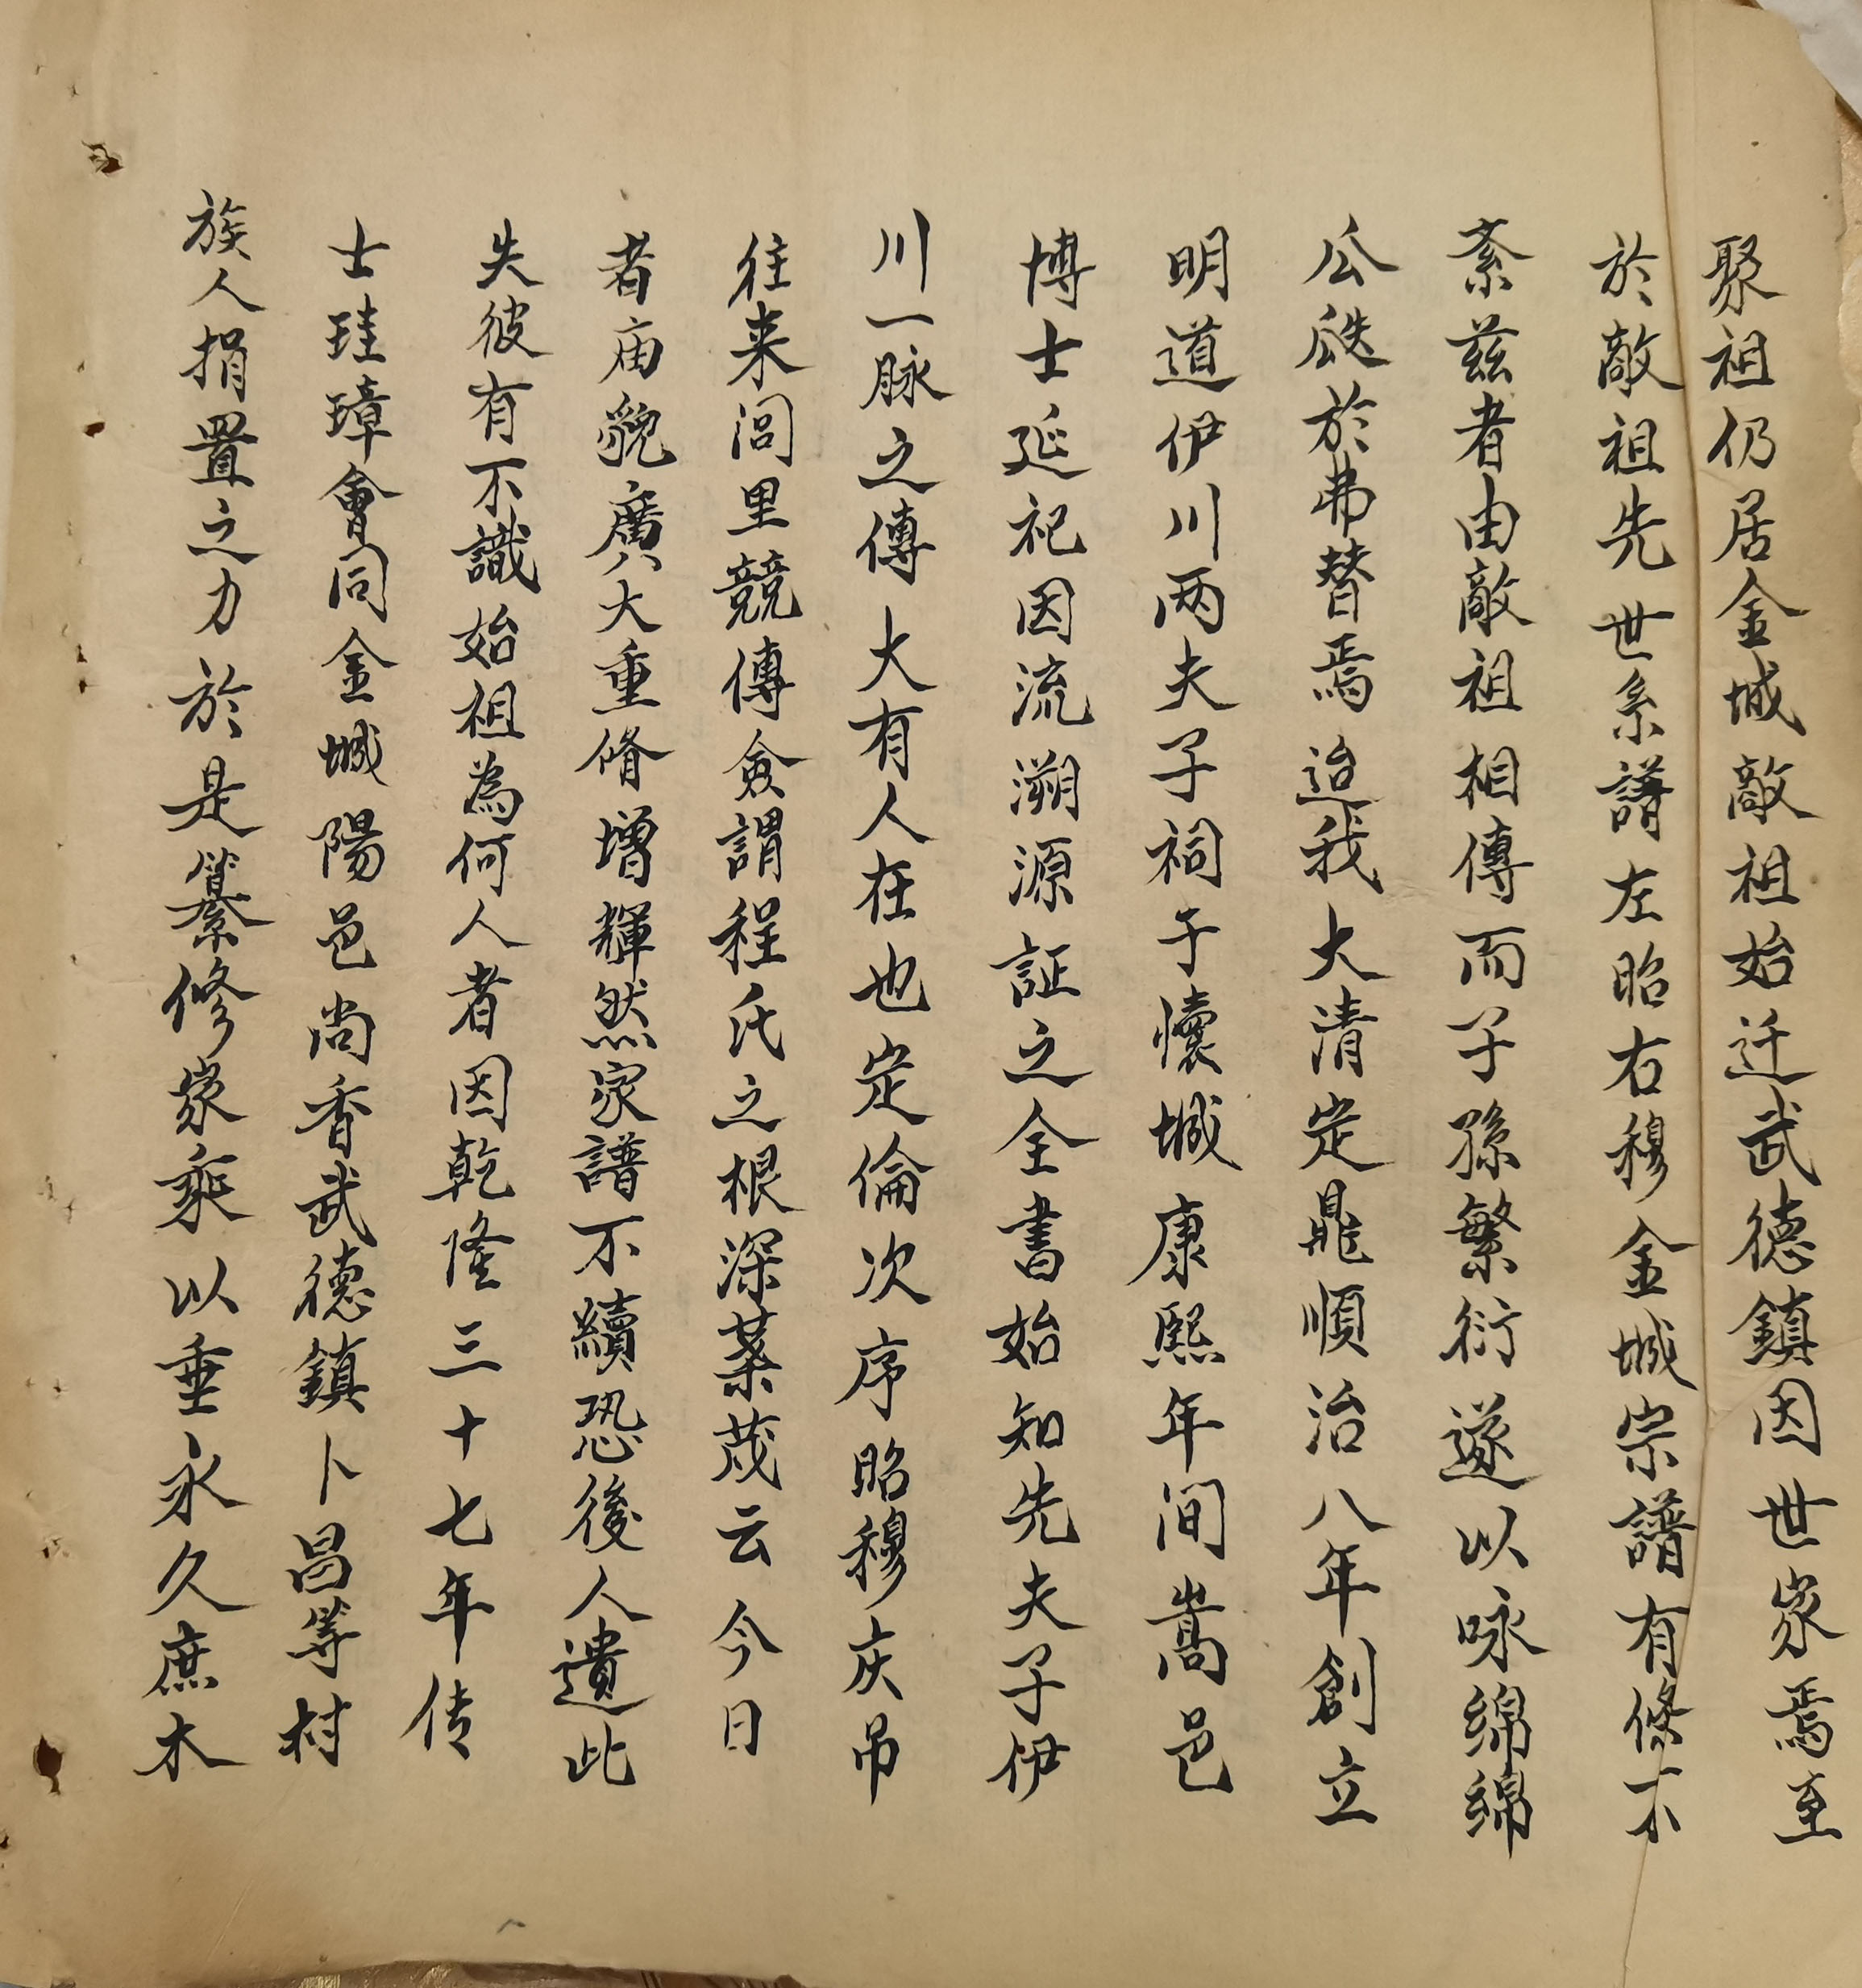 聚祖仍居金城敵祖始迁武德鎮因世家焉至
於敵祖先世系譜左昭右穆金城宗譜有條不
紊兹者由敵祖相傳而子孫繁衍遂以咏綿綿
瓜瓞於弗替焉迨我大清定鼎順治八年創立
明道伊川两夫子祠于懷城康熙年间嵩邑
博士延祀因流溯源証之全書始知先夫子伊
川一脉之傳大有人在也定倫次序昭穆庆吊
往来闾里競傳僉謂程氏之根深葉茂云今日
者庙貌廣大重脩增輝然家譜不續恐後人遺此
失彼有不識始祖為何人者因乾隆三十七年传
士珪璋會同金城陽邑尚香武德鎮卜昌等村
族人捐置之力於是纂修家乘以垂永久庶木